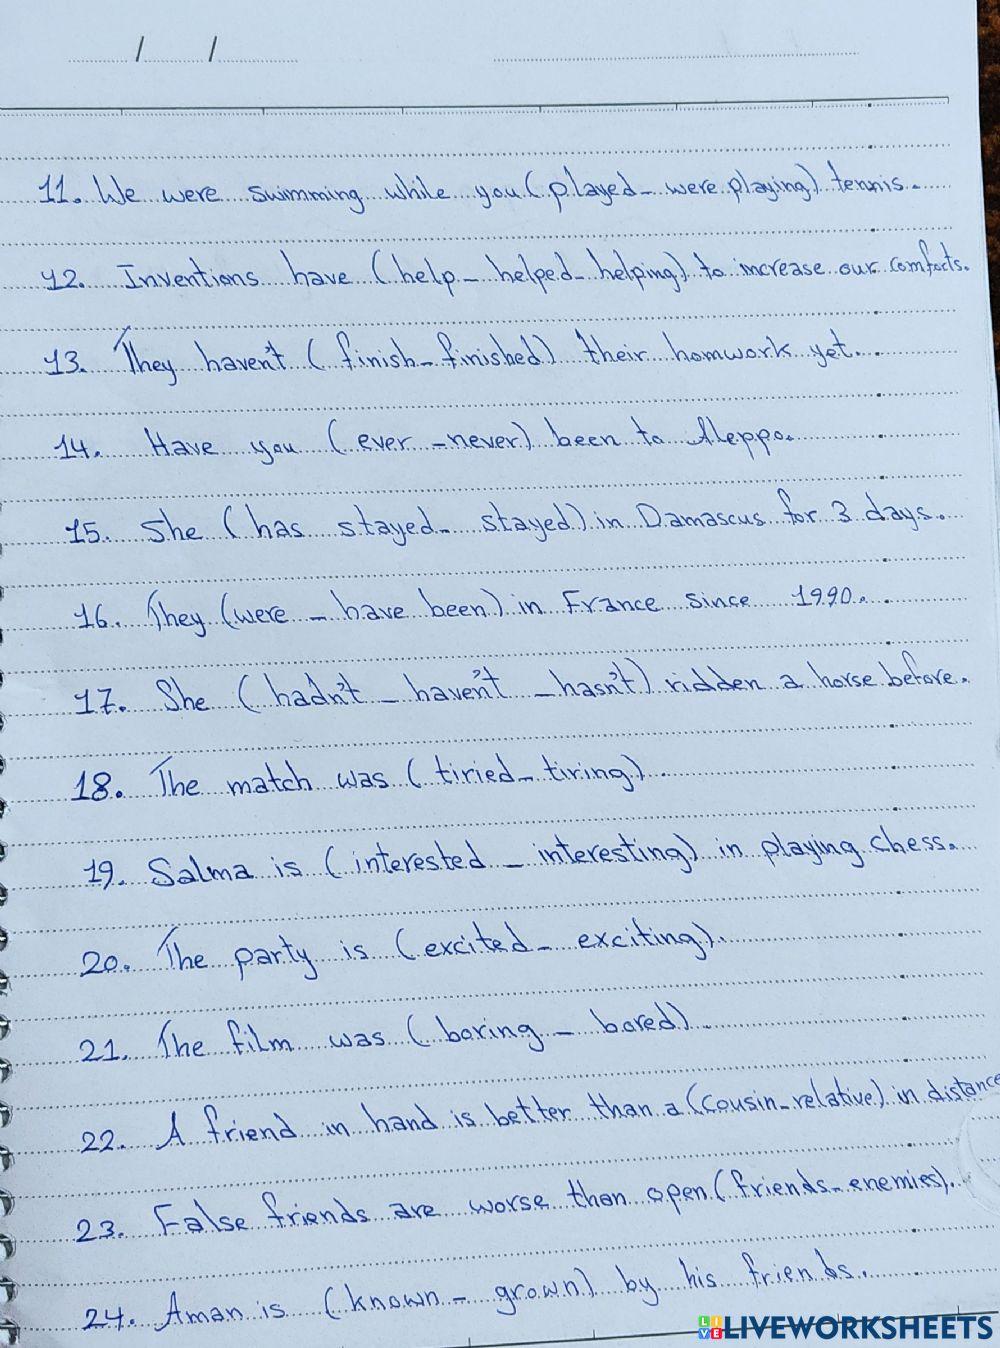 / /
11. We were swimming while you (played - were playing) tennis.
12. Inventions have (help - helped - helping) to increase our comforts.
13. They haven't (finish - finished) their homwork yet.
14. Have you (ever - never) been to Aleppo.
15. She (has stayed - stayed) in Damascus for 3 days.
16. They (were - have been) in France since 1990.
17. She (hadn't - haven't - hasn't) ridden a horse before.
18. The match was (tiried - tiring).
19. Salma is (interested - interesting) in playing chess.
20. The party is (excited - exciting).
21. The film was (boring - bored).
22. A friend in hand is better than a (cousin - relative) in distance
23. False friends are worse than open (friends - enemies).
24. Aman is (known - grown) by his friends.
LIVEWORKSHEETS